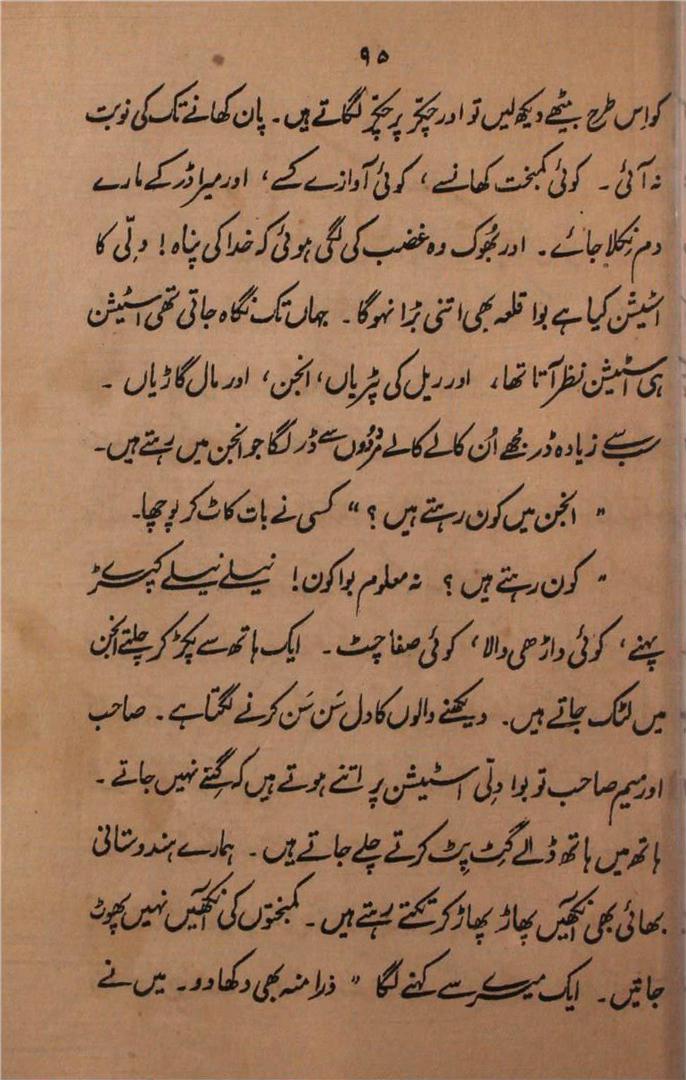 ۹۵
کو اِس طرح بیٹھے دیکھ لیں تو اور چکّر پر چکّر لگاتے ہیں۔ پان کھانے تک کی نوبت
نہ آئی۔ کوئی کمبخت کھانسے، کوئی آوازے کسے، اور میرا ڈر کے مارے
دم نِکلا جائے۔ اور بھُوک وہ غضب کی لگی ہوئی کہ خدا کی پناہ! دلّی کا
اسٹیشن کیا ہے بوا قلعہ بھی اتنی بڑا نہوگا۔ جہاں تک نگاہ جاتی تھی اسٹیشن
ہی اسٹیشن نظر آتا تھا، اور ریل کی پٹریاں، انجن، اور مال گاڑیاں۔
سب سے زیادہ ڈر مجھے اُن کالے کالے مردُوں سے ڈر لگا جو انجن میں رہتے ہیں۔
" انجن میں کون رہتے ہیں؟" کسی نے بات کاٹ کر پوچھا۔
" کون رہتے ہیں؟ نہ معلوم بوا کون! نیلے نیلے کپڑے
پہنے، کوئی داڑھی والا، کوئی صفا چٹ۔ ایک ہاتھ سے پکڑ کر چلتے انجن
میں لٹک جاتے ہیں۔ دیکھنے والوں کا دل سَن سَن کرنے لگتا ہے۔ صاحب
اور میم صاحب تو بوا دِلّی اسٹیشن پر اتنے ہوتے ہیں کہ گِنے نہیں جاتے۔
ہاتھ میں ہاتھ ڈالے گِٹ پِٹ کرتے چلے جاتے ہیں۔ ہمارے ہندوستانی
بھائی بھی آنکھیں پھاڑ پھاڑ کر تکتے رہتے ہیں۔ کمبختوں کی آنکھیں نہیں پھوٹ
جاتیں۔ ایک میرے سے کہنے لگا " ذرا منہ بھی دکھا دو۔ میں نے